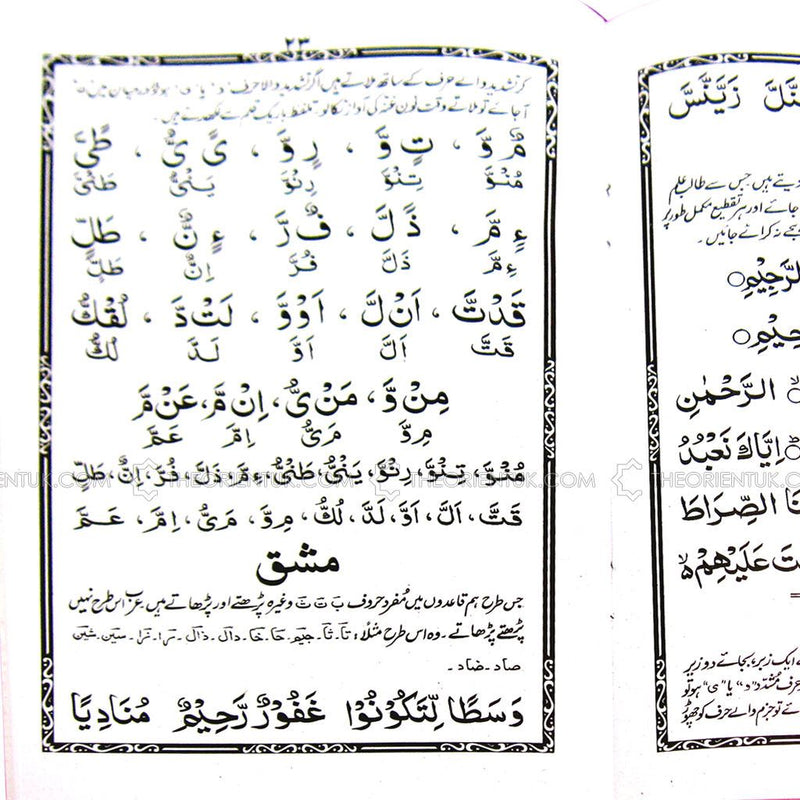 ۲۳
کر تشدید والے حرف کے ساتھ ملاتے ہیں اگر تشدید والا حرف "و" یا "ی" ہو تو درمیان میں
آ جائے تو ملاتے وقت نون غنہ کی آواز نکالو۔ تلفظ باریک قلم سے لکھ دئے ہیں۔
مٌ وَّ ، تٍ وَّ ، رٍ وَّ ، یً یُّ ، طً یَّ
مُنْوَّ تِنْوَّ رِنْوَّ یَنْیُّ طَنْیَّ
ءٍ مَّ ، ذً لَّ ، فٌ رَّ ، ءٍ نٌّ ، طً لٍّ
ءِمَّ ذَلَّ فُرَّ اِنٌّ طَلٍّ
قَدْتَّ ، اَنْ لَّ ، اَوْوَّ ، لَتْ دَّ ، لُقْكُّ
قَتَّ اَلَّ اَوَّ لَدَّ لُكُّ
مِنْ وَّ ، مَنْ یُّ ، اِنْ مَّ ، عَنْ مَّ
مِوَّ مَیُّ اِمَّ عَمَّ
مُنْوَّ، تِنْوَّ، رِنْوَّ، یَنْیُّ، طَنْیُّ، ءِمَّ، ذَلَّ، فُرَّ، اِنٌّ، طَلٍّ
قَتَّ، اَلَّ، اَوَّ، لَدَّ، لُكُّ، مِوَّ، مَیُّ، اِمَّ، عَمَّ
مشق
جس طرح ہم قاعدوں میں مُفرد حروف بَ تَ ثَ وغیرہ پڑھتے اور پڑھاتے ہیں عرب اس طرح نہیں
پڑھتے پڑھاتے۔ وہ اس طرح مثلًا: تا۔ ثا۔ جیم۔ حا۔ خا۔ دال۔ ذال۔ را۔ زا۔ سین۔ شین
صاد۔ ضاد۔
وَسَطًا لِّتَكُوْنُوْا غَفُوْرٌ رَّحِیْمٌ مُنَادِیًا
نَّلَّ زَیَّنَّسَّ
دیتے ہیں جس سے طالب علم
جائے اور ہر تقطیع مکمل طور پر
ہجے نہ کرائے جائیں۔
الرَّجِیْمِ
حِیْمِ
الرَّحْمٰنِ
اِیَّاكَ نَعْبُدُ
نَا الصِّرَاطَ
تَ عَلَیْهِمْ
ایک زبر، بجائے دو زیر
حرف مُشدّد "و" یا "ی" ہو تو
تو جزم والے حرف کو چھوڑ
THEORIENTUK.COM
THEORIENTUK.COM
THEORIENTUK.COM